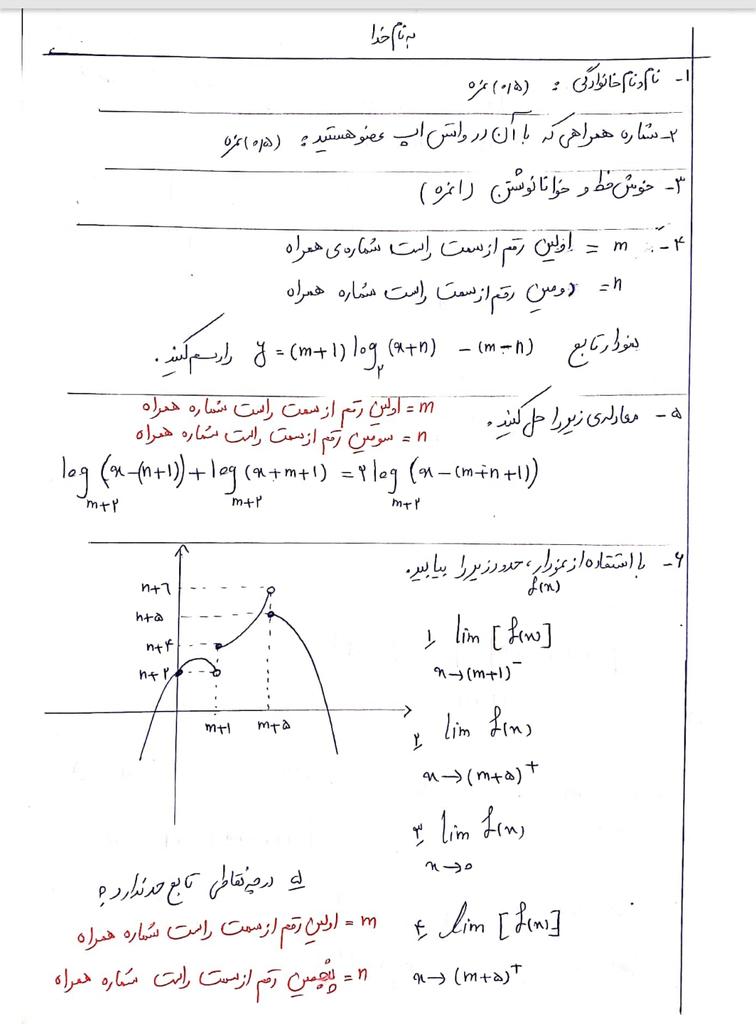 به نام خدا
۱- نام و نام خانوادگی : (۰/۵) نمره
۲- شماره همراهی که با آن در واتس اپ عضو هستید : (۰/۵) نمره
۳- خوش خط و خوانا نوشتن (۱ نمره)
۴- m = اولین رقم از سمت راست شماره ی همراه
n = دومین رقم از سمت راست شماره همراه
نمودار تابع y = (m+1) log₂ (x+n) - (m-n) را رسم کنید.
۵- معادله ی زیر را حل کنید.
m = اولین رقم از سمت راست شماره همراه
n = سومین رقم از سمت راست شماره همراه
log_{m+۲} (x-(n+1)) + log_{m+۲} (x+m+1) = ۲ log_{m+۲} (x-(m+n+1))
۶- با استفاده از نمودار f(x)، حدود زیر را بیابید.
n+6
n+۵
n+۴
n+۲
m+1
m+۵
۱) lim [f(x)]
x→(m+1)⁻
۲) lim f(x)
x→(m+۵)⁺
۳) lim f(x)
x→0
۴) lim [f(x)]
x→(m+۵)⁺
۵) در چه نقاطی تابع حد ندارد؟
m = اولین رقم از سمت راست شماره همراه
n = پنجمین رقم از سمت راست شماره همراه